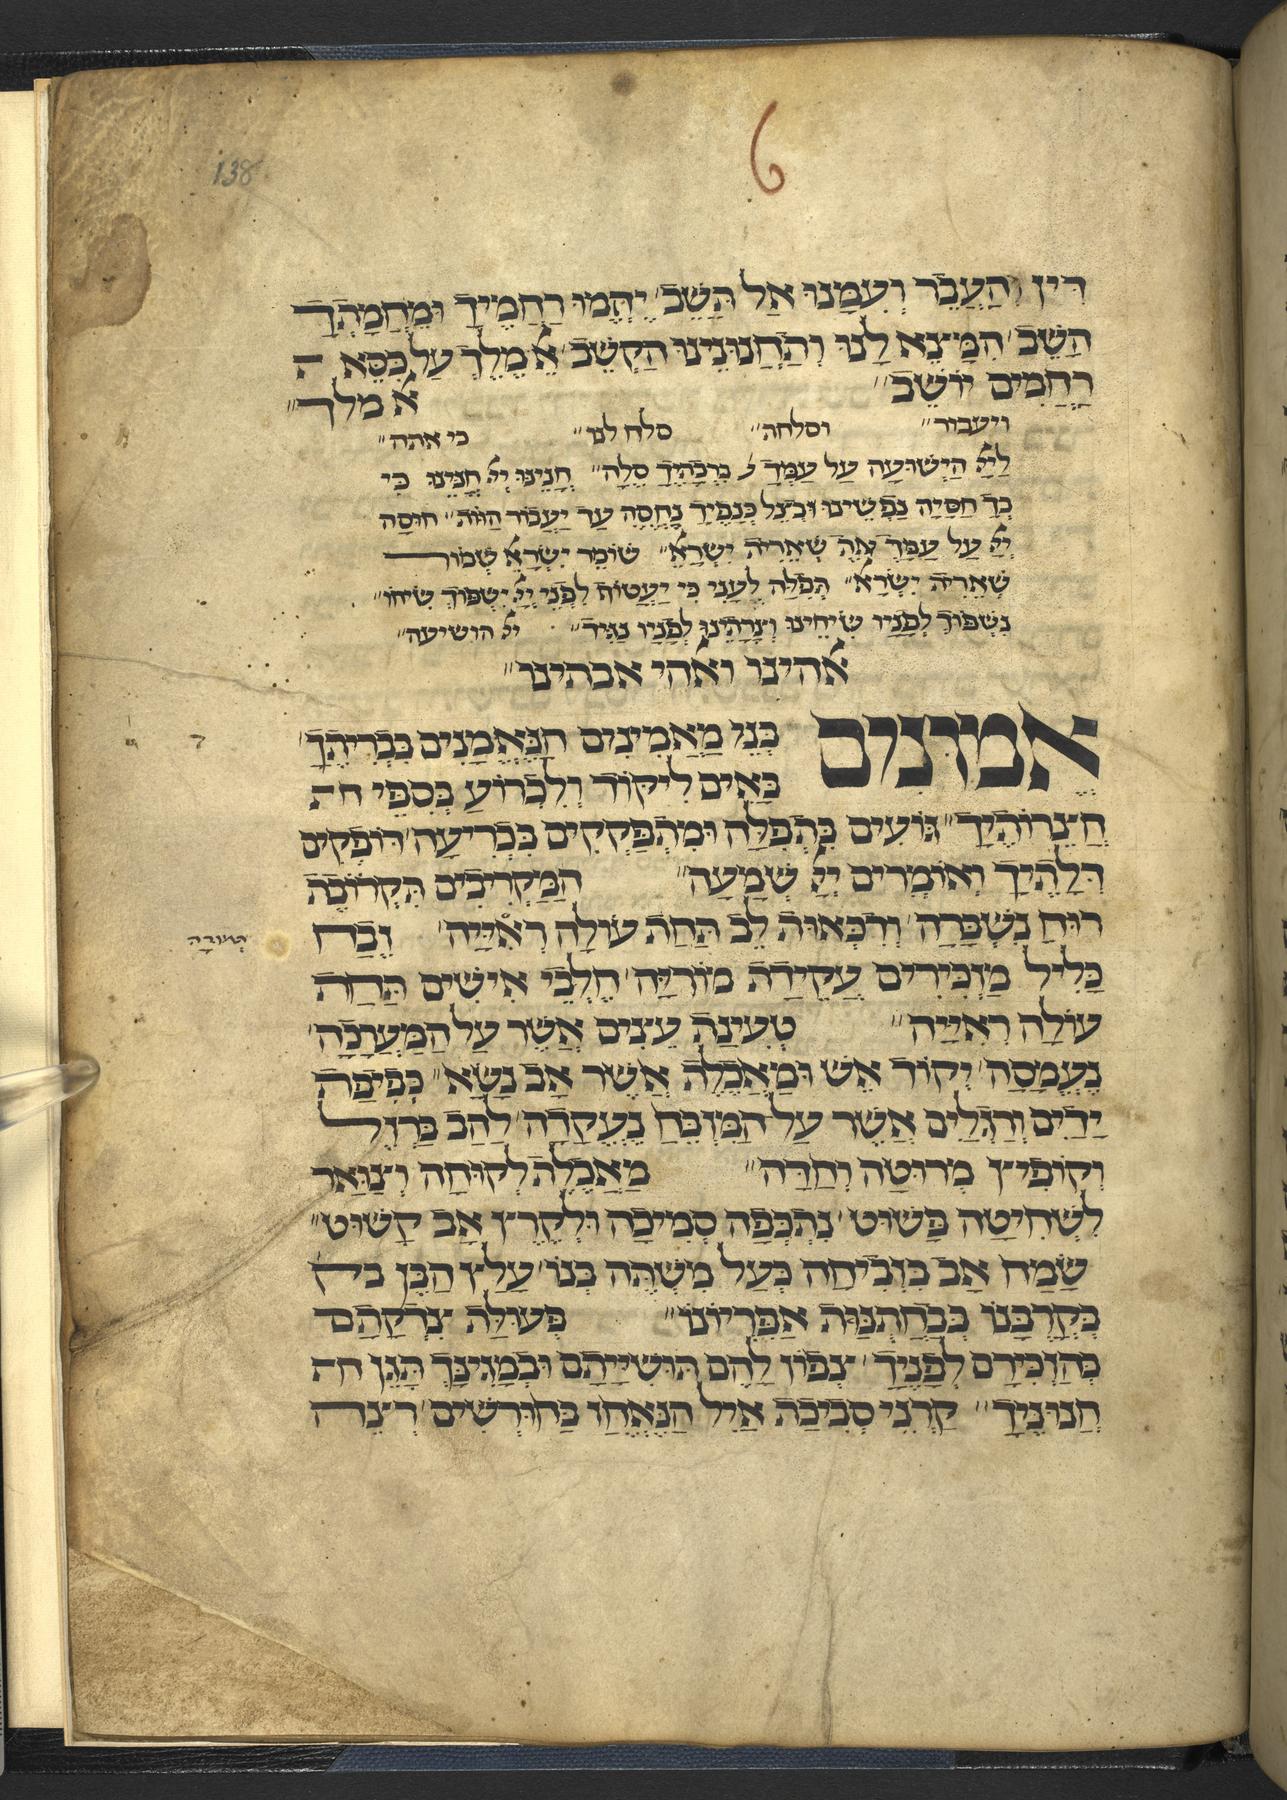 138
6
דִּין וְהַעֲבֵר וְעִמָּנוּ אַל תָּשֵׁב׳ יֶהֱמוּ רַחֲמֶיךָ וּמֵחֲמָתְךָ
הַשֵּׁב׳ הִמָּצֵא לָנוּ וְתַחֲנוּנֵינוּ הַקְשֵׁב׳ אֵ מֶלֶךְ עַל כִּסֵּא ה
רַחֲמִים יוֹשֵׁב״ א מלך״
ויעבור״ וסלחת״ סלח לנו״ כי אתה״
לַיְיָ הַיְשׁוּעָה עַל עַמְּךָ בִרְכָתֶיךָ סֶלָה״ חָנֵינוּ יְיָ חָנֵּינוּ כִּי
בְךָ חָסָיָה נַפְשֵׁינוּ וּבְצֵל כְּנָפֶיךָ נֶחְסֶה עַד יַעֲבוֹר הַוּוֹת״ חוּסָה
יְיָ עַל עַמְּךָ אֶת שְׁאֵרִית יִשְׂרָאֵ״ שׁוֹמֵר יִשְׂרָאֵ שְׁמוֹר
שְׁאֵרִית יִשְׂרָאֵ״ תְּפִלָּה לְעָנִי כִּי יַעֲטוֹף לִפְנֵי יְיָ יִשְׁפּוֹךְ שִׂיחוֹ״
נִשְׁפּוֹךְ לְפָנָיו שִׂיחֵינוּ וְצָרָתֵינוּ לְפָנָיו נַגִּיד״ יְיָ הושיעה״
אהינו ואהי אבתינו״
אֱמוּנִים בְּנֵי מַאֲמִינִים הַנֶּאֱמָנִים בִּבְרִיתֶךָ׳
בָּאִים לִיקּוֹד וְלִכְרוֹעַ בְּסִפֵּי חת
חַצְרוֹתֶיךָ״ גּוֹעִים בִּתְפִלָּה וּמִתְפַּקְקִים בִּכְרִיעָה׳ דּוֹפְקִים
דְּלָתֶיךָ וְאוֹמְרִים יְיָ שְׁמָעָה״ הַמַּקְרִיבִים תִּקְרוֹבֶת
רוּחַ נִשְׁבָּרָה׳ וְדִכְּאוּת לֵב תַּחַת עוֹלָה רְאִיָּיה׳ זֶבַח
תמורה
כָּלִיל מַזְכִּירִים עֲקֵידַת מוֹרִיָּה׳ חֶלְבֵי אִישִׁים תַּחַת
עוֹלַת רְאִיָּיה״ טְעִינַת עֵצִים אֲשֶׁר עַל הַמַּעֲרָכָה׳
נֶעֱמָסָה׳ יְקוֹד אֵשׁ וּמַאֲכֶלֶת אֲשֶׁר אָב נָשָׂא״ כְּפִיפַת
יָדַיִם וְרַגְלַיִם אֲשֶׁר עַל הַמִּזְבֵּחַ נֶעֱקָדָה׳ לַהַב בַּרְזֶל
וְקוֹפִיץ מְרוּטָה וְחַדָּה״ מַאֲכֶלֶת לְקוּחָה וְצַוַּאר
לִשְׁחִיטָה פָּשׁוּט׳ נִתְכַּפָּה סְמִיכָה וּלְקֶרֶץ אָב קָשׁוּט״
שָׂמַח אָב בִּזְבִיחַת כְּעַל מִשְׁתֵּה בְּנוֹ׳ עָלַץ הַבֵּן בית
בְּקָרְבָּנוֹ כְּבַחֲתֻנַּת אַפִּרְיוֹנוֹ״ פְּעוּלַּת צִדְקָתָם
בְּהַזְכִּירָם לְפָנֶיךָ׳ צְפוֹן לָהֶם תּוּשִׁיָּיתָם וּבְמָגִינְךָ תָּגֵן חת
חֲנוּנֶיךָ״ קַרְנֵי סְבִיכַת אַיִל הַנֶּאֱחַז בַּחוּרְשִׁים׳ רִצְּתָה